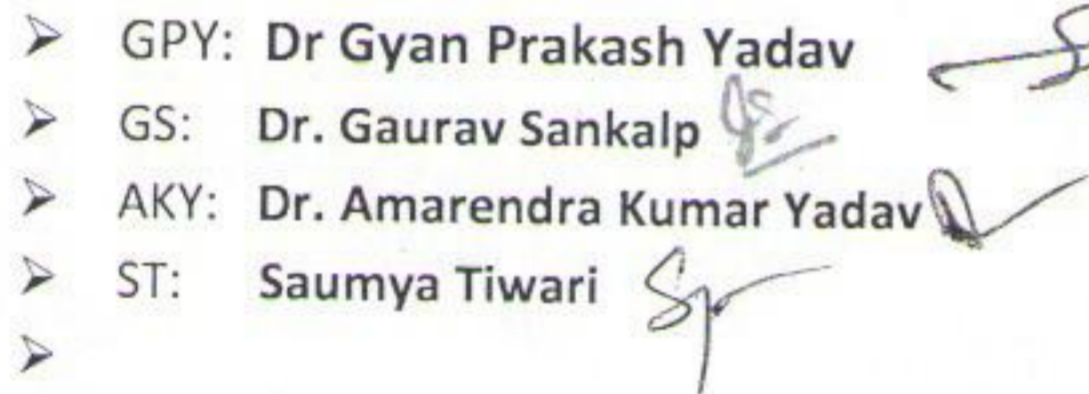 ➢ GPY: Dr Gyan Prakash Yadav
➢ GS: Dr. Gaurav Sankalp
➢ AKY: Dr. Amarendra Kumar Yadav
➢ ST: Saumya Tiwari
➢